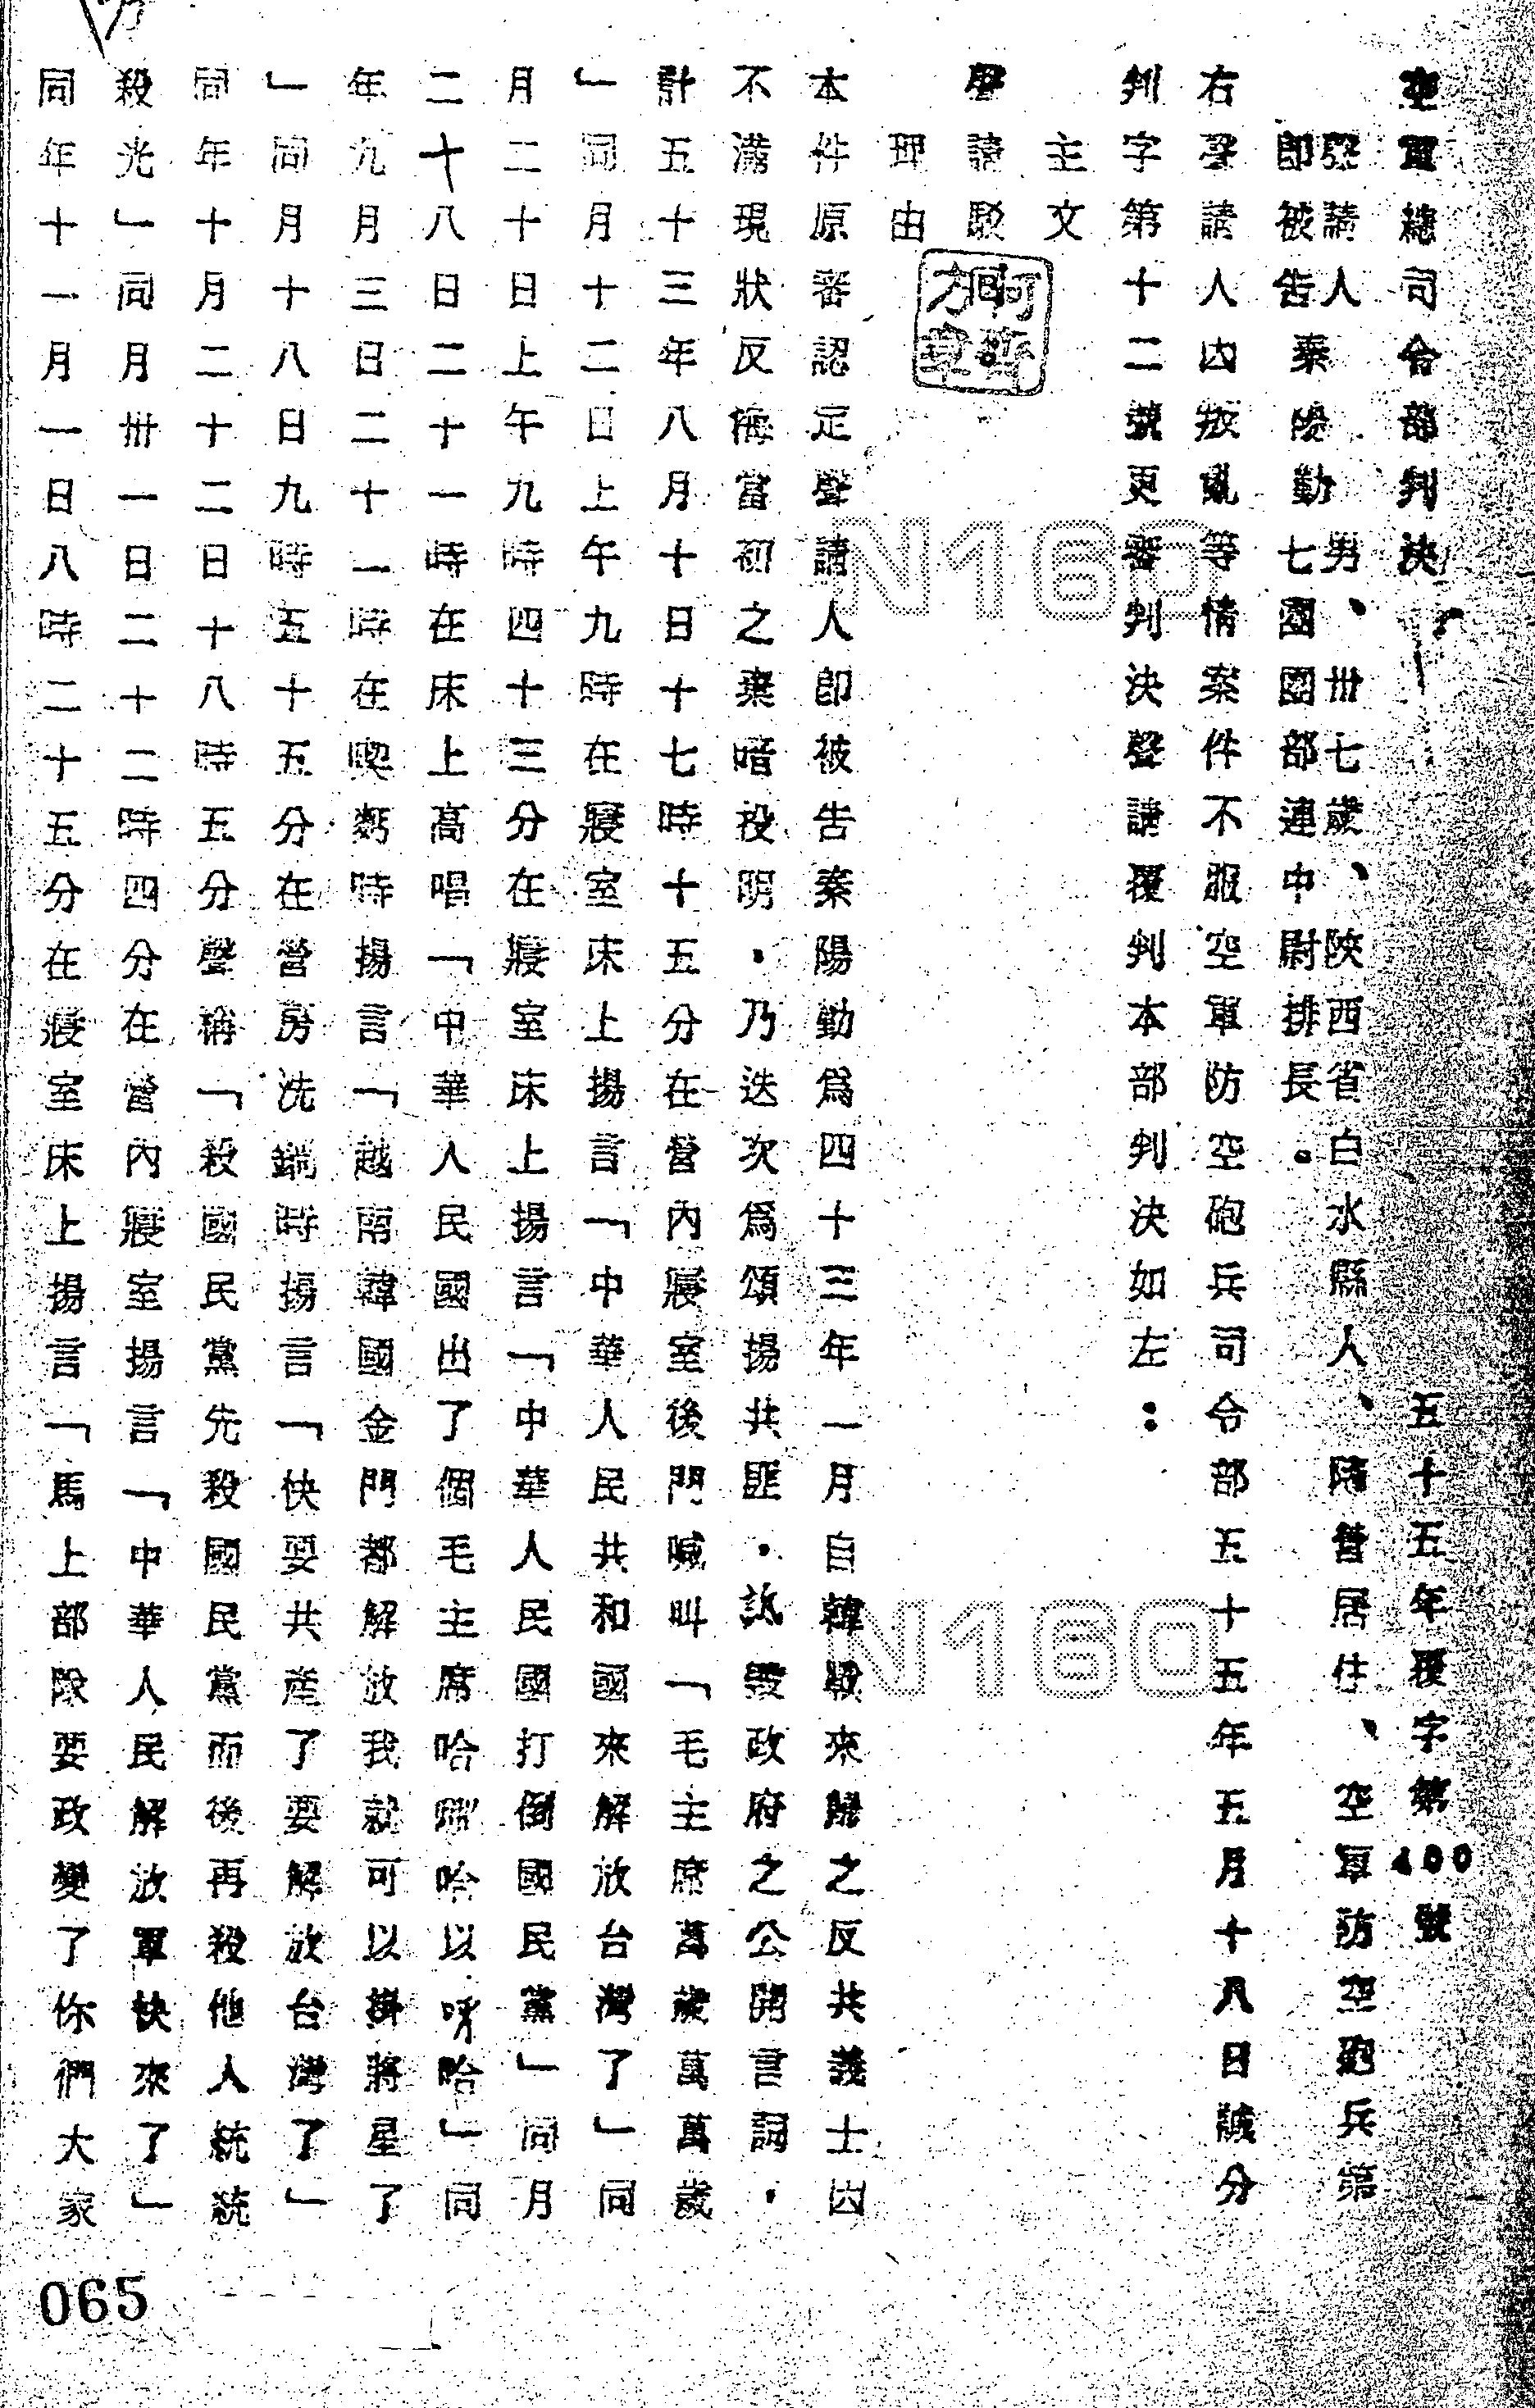 空軍總司令部判決
五十五年覆字第100號
聲請人 男、卅七歲、陝西省白水縣人、隨營居住、空軍防空砲兵第
即被告 秦陽勤 七團團部連中尉排長。
右聲請人因叛亂等情案件不服空軍防空砲兵司令部五十五年五月十八日誠分
判字第十二號更審判決聲請覆判本部判決如左：
主文
聲請駁回
理由
本件原審認定聲請人即被告秦陽勤為四十三年一月自韓戰來歸之反共義士因
不滿現狀反悔當初之棄暗投明．乃迭次為頌揚共匪．詆毀政府之公開言詞．
計五十三年八月十日十七時十五分在營內寢室後門喊叫「毛主席萬歲萬萬歲
」同月十二日上午九時在寢室床上揚言「中華人民共和國來解放台灣了」同
月二十日上午九時四十三分在寢室床上揚言「中華人民國打倒國民黨」同月
二十八日二十一時在床上高唱「中華人民國出了個毛主席哈哈以呀哈」同
年九月三日二十一時在喫麪時揚言「越南韓國金門都解放我就可以掛將星了
」同月十八日九時五十五分在營房洗鍋時揚言「快要共產了要解放台灣了」
同年十月二十二日十八時五分聲稱「殺國民黨先殺國民黨而後再殺他人統統
殺光」同月卅一日二十二時四分在營內寢室揚言「中華人民解放軍快來了」
同年十一月一日八時二十五分在寢室床上揚言「馬上部隊要政變了你們大家
065
N160
N160